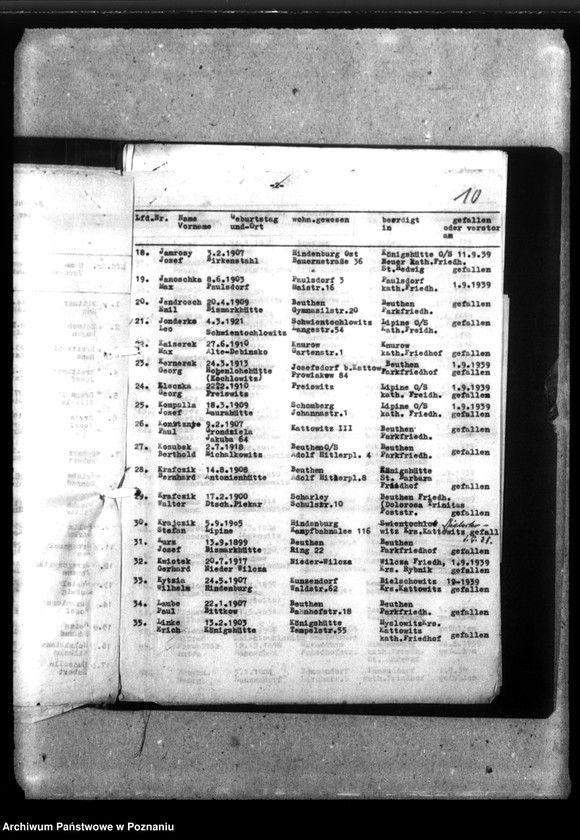 -2-
10
Lfd.Nr. Name Geburtstag wohn.gewesen beerdigt gefallen
Vorname und-Ort in oder verstor
am
18. Jamrosy 3.2.1907 Hindenburg Ost Königshütte O/S 11.9.39
Josef Birkenstahl Bauernstraße 36 Neuer Kath.Friedh.
St.Hedwig gefallen
19. Janoschka 8.6.1903 Paulsdorf 3 Paulsdorf 1.9.1939
Max Paulsdorf Maistr.16 kath.Friedh.
20. Jendrosch 20.4.1909 Beuthen Beuthen gefallen
Emil Bismarkhütte Gymnasilstr.20 Parkfriedh.
21. Jonderko 4.3.1921 Schwientochlowitz Lipine O/S gefallen
Leo Schwientochlowitz Langestr.54 Kath.Freidh.
22. Kaiserek 27.6.1910 Knurow Knurow
Max Alte-Debinsko Gartenstr.1 kath.Friedhof gefallen
23. Kernerek 24.3.1913 Josefsdorf b.Kattow Beuthen 1.9.1939
Georg Hohenlohehütte Prowiakow 84 Parkfriedh. gefallen
(Kochlowitz)
24. Kleczka 22.2.1910 Preiswitz Lipine O/S 1.9.1939
Georg Preiswitz kath. Freidh. gefallen
25. Kompalla 18.3.1909 Schomberg Lipine O/S 1.9.1939
Josef Laurahütte Johannastr.1 kath. Friedh. gefallen
26. 9.2.1907 Kattowitz III Beuthen gefallen
Paul Grondziela Parkfriedh.
Jakuba 64
27. Kosubek 2.7.1918 BeuthenO/S Beuthen gefallen
Berthold Michalkowitz Adolf Hitlerpl. 4 Parkfriedh.
28. Krafczik 14.8.1908 Beuthen Königshütte
Bernhard Antonienhütte Adolf Hitlerpl.8 St. Barbara
Friedhof gefallen
29. Krafczik 17.2.1900 Scharley Beuthen Friedh.
Walter Dtsch.Piekar Schulstr.10 (Dolorosa Trinitas
Poststr. gefallen
30. Krajczik 5.9.1905 Hindenburg Swientochlo
Stefan Lipine Kampfbahnalee 116 witz Krs.Kattowitz gefall
31. Kurz 13.9.1899 Beuthen Beuthen
Josef Bismarkhütte Ring 22 Parkfriedhof gefallen
32. Kwiotek 20.7.1917 Nieder-Wilcza Wilcza Friedh. 1.9.1939
Gerhard Nieder Wilcza Krs. Rybnik gefallen
33. Kytzia 24.5.1907 Kunzendorf Bielschowitz 19-1939
Wilhelm Hindenburg Waldstr.62 Krs.Kattowitz gefallen
34. Laube 22.1.1907 Beuthen Beuthen
Paul Bittkow Bahnhofstr.18 Parkfriedh. gefallen
35. Linke 13.2.1903 Königshütte Myslowitzkrs.
Erich Königshütte Tempelstr.55 Kattowitz
kath.Friedhof gefallen
Archiwum Państwowe w Poznaniu